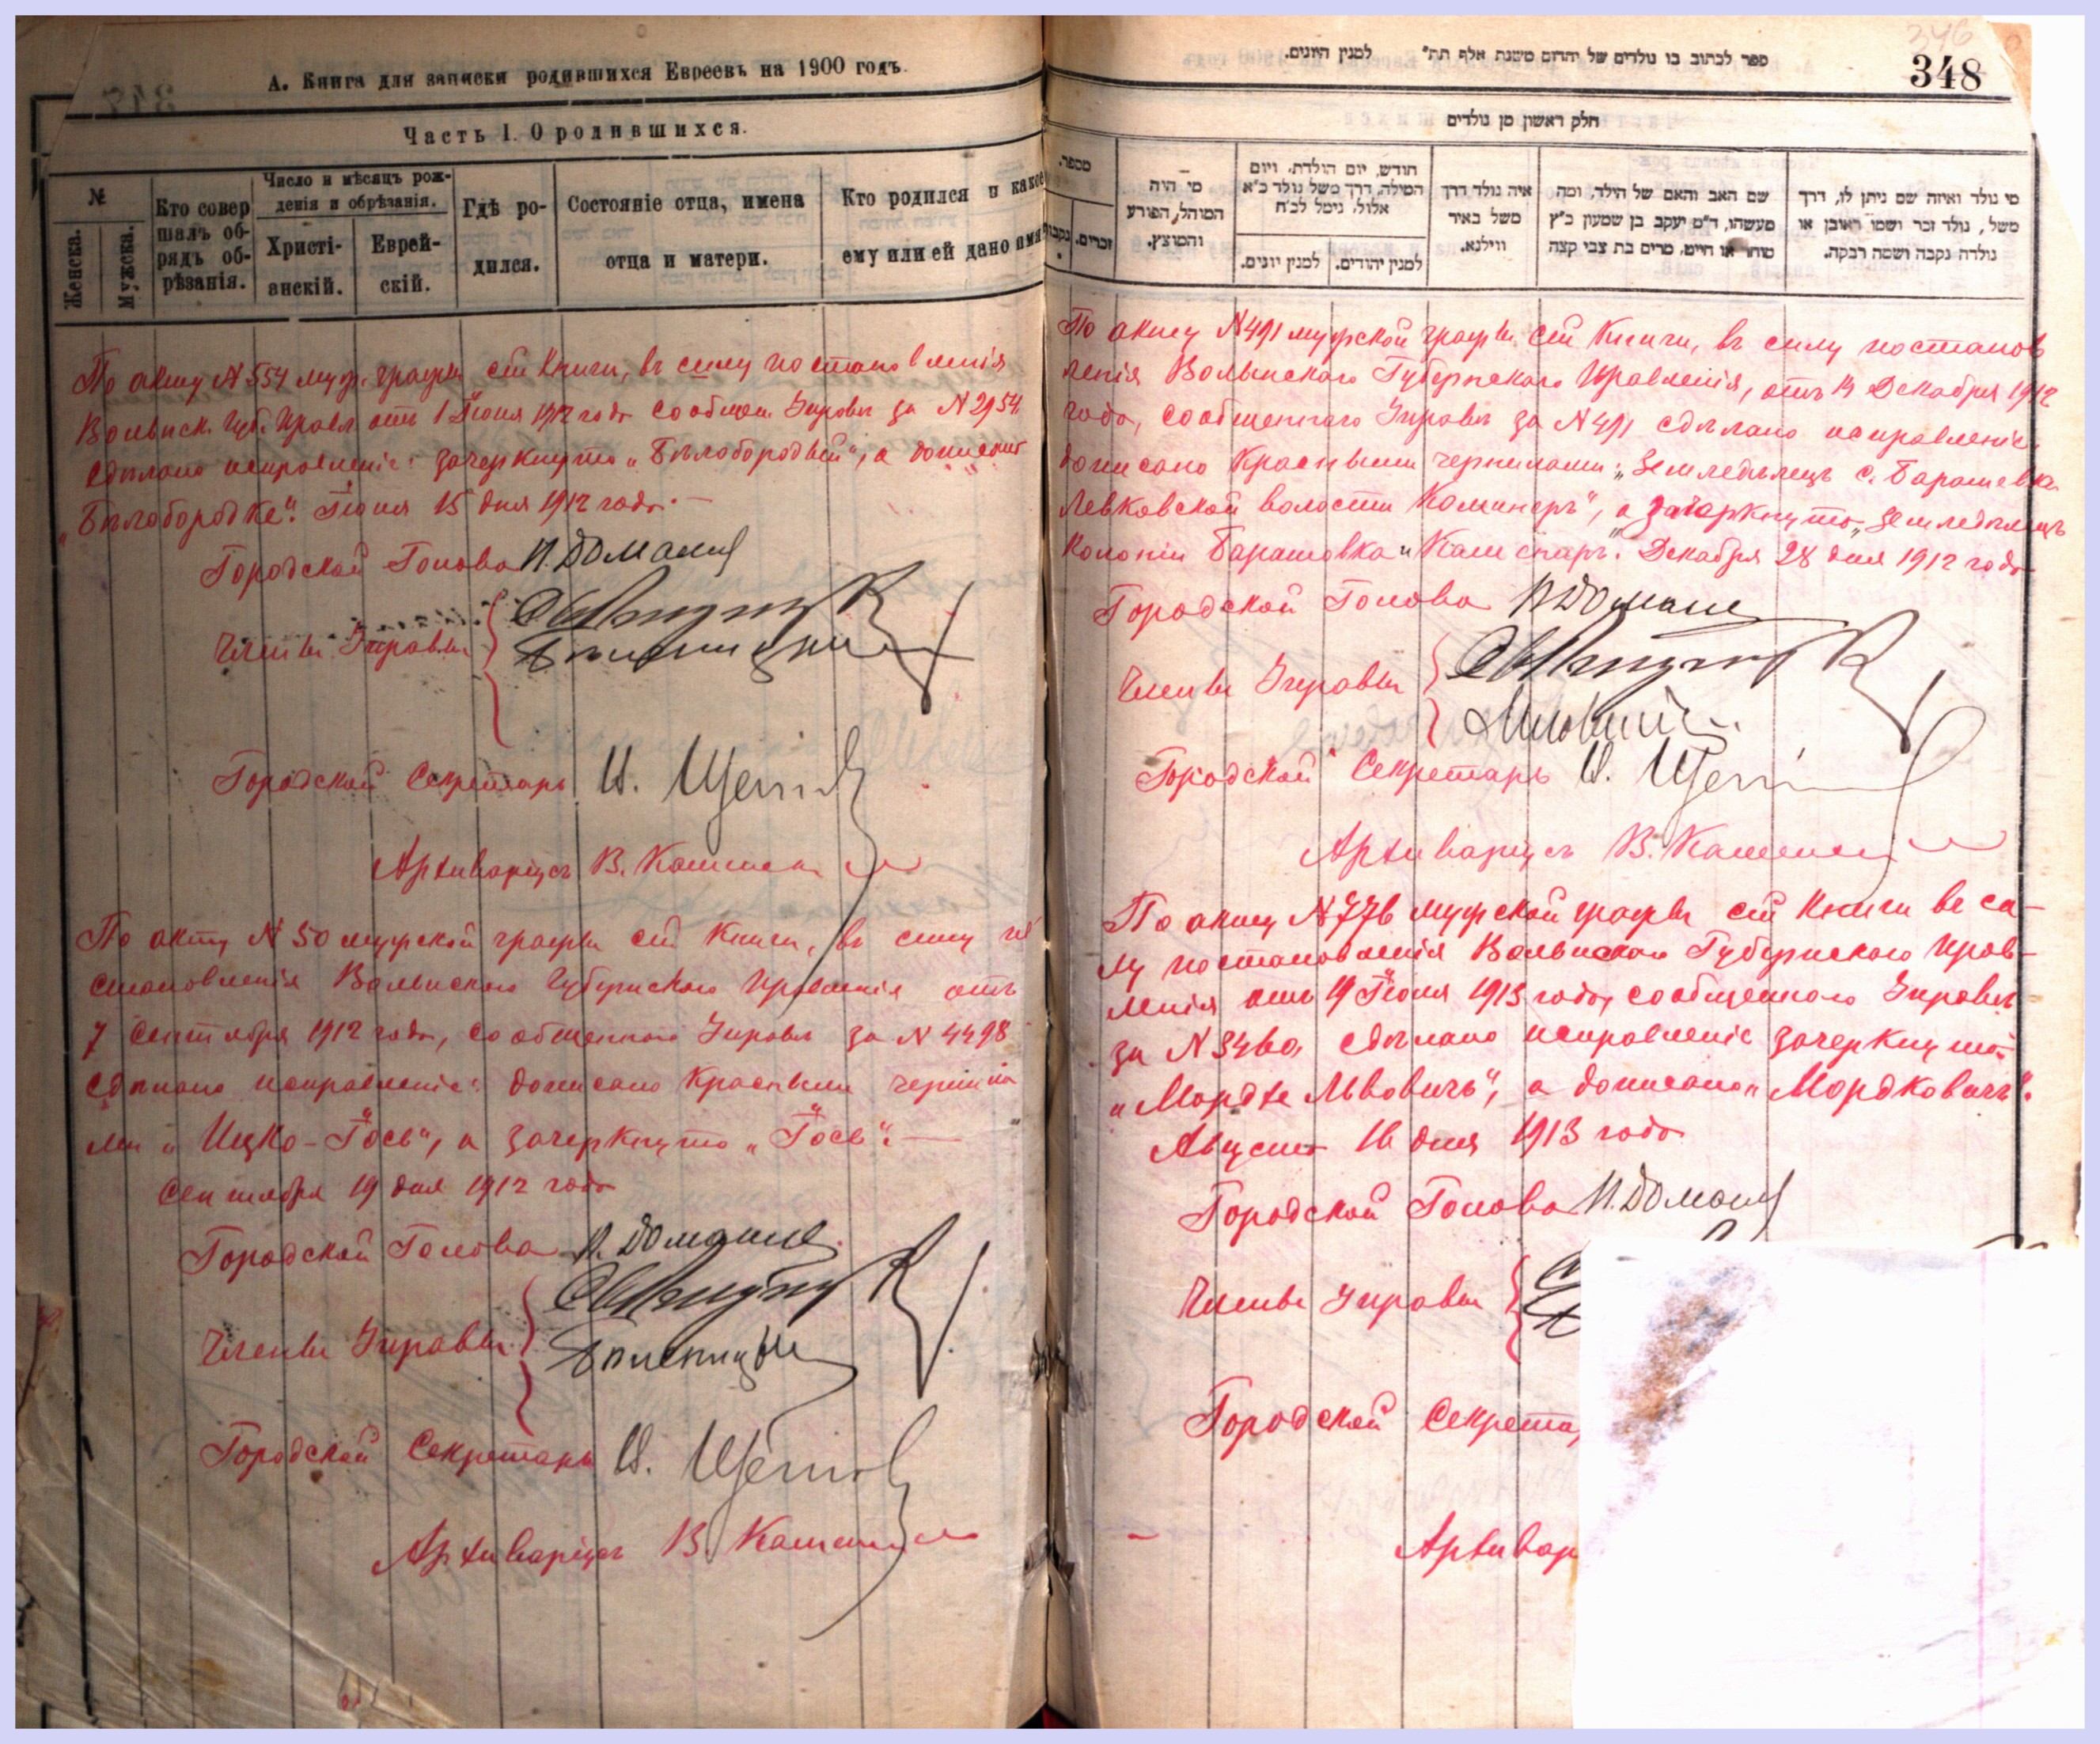 А. Книга для записки родившихся Евреевъ на 1900 годъ.
Часть I. О родившихся.
№
Женска.
Мужска.
Кто совер
шалъ об-
рядъ об-
рѣзанія.
Число и мѣсяцъ рож-
денія и обрѣзанія.
Христі-
анскій.
Еврей-
скій.
Гдѣ ро-
дился.
Состояніе отца, имена
отца и матери.
Кто родился и какое
ему или ей дано имя
По акту № 554 муж. графы сей Книги, въ силу постановленія
Волынск. Губ. Правл отъ 1 Іюня 1912 года сообщен Управѣ за № 2954
сдѣлано исправленіе: зачеркнуто „Бѣлобородый", а дописано
„Бѣлобородке". Іюня 15 дня 1912 года.
Городской Голова П. Домане
Члены Управы
Городской Секретарь И.
Архиваріусъ В.
По акту № 50 мужской графы сей Книги, въ силу по
становленія Волынского Губернского Правленія отъ
7 Сентября 1912 года, сообщенного Управѣ за № 4498
сдѣлано исправленіе: дописано красными чернила
ми „Ицко-Іось", а зачеркнуто „Іось".
Сентября 19 дня 1912 года
Городской Голова П. Домане
Члены Управы
Городской Секретарь И.
Архиваріусъ В.
346
348
ספר לכתוב בו נולדים של יהודים משנת אלף תת" למנין היונים.
חלק ראשון מן נולדים
מספר.
נקבות
זכרים.
מי היה
המוהל, הפורע
והמוצץ.
חודש, יום הולדת, ויום
המילה, דרך משל נולד כ"א
אלול, נימל לכ"ח
למנין יונים.
למנין יהודים.
איה נולד דרך
משל באיד
ווילנא.
שם האב והאם של הילד, ומה
מעשהו, ד"מ יעקב בן שמעון כ"ץ
סוחר או חייט, מרים בת צבי קצה
מי נולד ואיזה שם ניתן לו, דרך
משל, נולד זכר ושמו ראובן או
נולדה נקבה ושמה רבקה.
По акту № 491 мужской графы сей Книги, въ силу постанов
ленія Волынского Губернского Правленія, отъ 13 Декабря 1912
года, сообщенного Управѣ за № 491 сдѣлано исправленіе:
дописано красными чернилами: „Земледѣлецъ с. Барашевка
Левковской волости Каминеръ", а зачеркнуто „Земледѣлецъ
колоніи Барашовка Декабря 28 дня 1912 года
Городской Голова П Домане
Члены Управы
Городской Секретарь И.
Архиваріусъ В.
По акту № 776 мужской графы сей Книги въ си-
лу постановленія Волынского Губернского Прав-
ленія отъ 19 Іюня 1913 года, сообщенного Управѣ
за № 3460, сдѣлано исправленіе зачеркнуто
„Мордхе Львовичъ", а дописано „Мордковичъ".
Августа 16 дня 1913 года
Городской Голова П. Домане
Члены Управы
Городской Секрета
Архивар